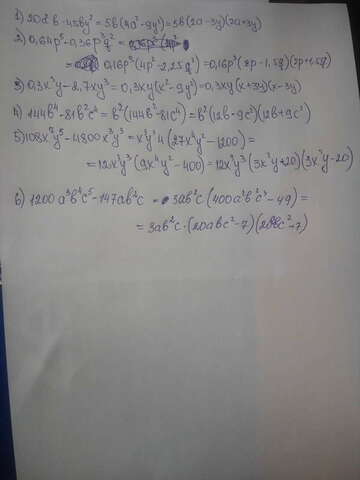 1) 20a²b-45by² = 5b(4a²-9y²) = 5b(2a-3y)(2a+3y)
2) 0,64p⁵-0,36p³q² =
= 0,16p³(4p²-2,25q²) = 0,16p³(2p-1,5q)(2p+1,5q)
3) 0,3x³y-2,7xy³ = 0,3xy(x²-9y²) = 0,3xy(x+3y)(x-3y)
4) 144b⁴-81b²c⁴ = b²(144b²-81c⁴) = b²(12b-9c²)(12b+9c²)
5) 108x⁷y⁵-4800x³y³ = x³y³4(27x⁴y²-1200) =
= 12x³y³(9x⁴y²-400) = 12x³y³(3x²y+20)(3x²y-20)
6) 1200a³b⁴c⁵-147ab²c = 3ab²c(400a²b²c⁴-49) =
= 3ab²c·(20abc²-7)(20abc²+7)